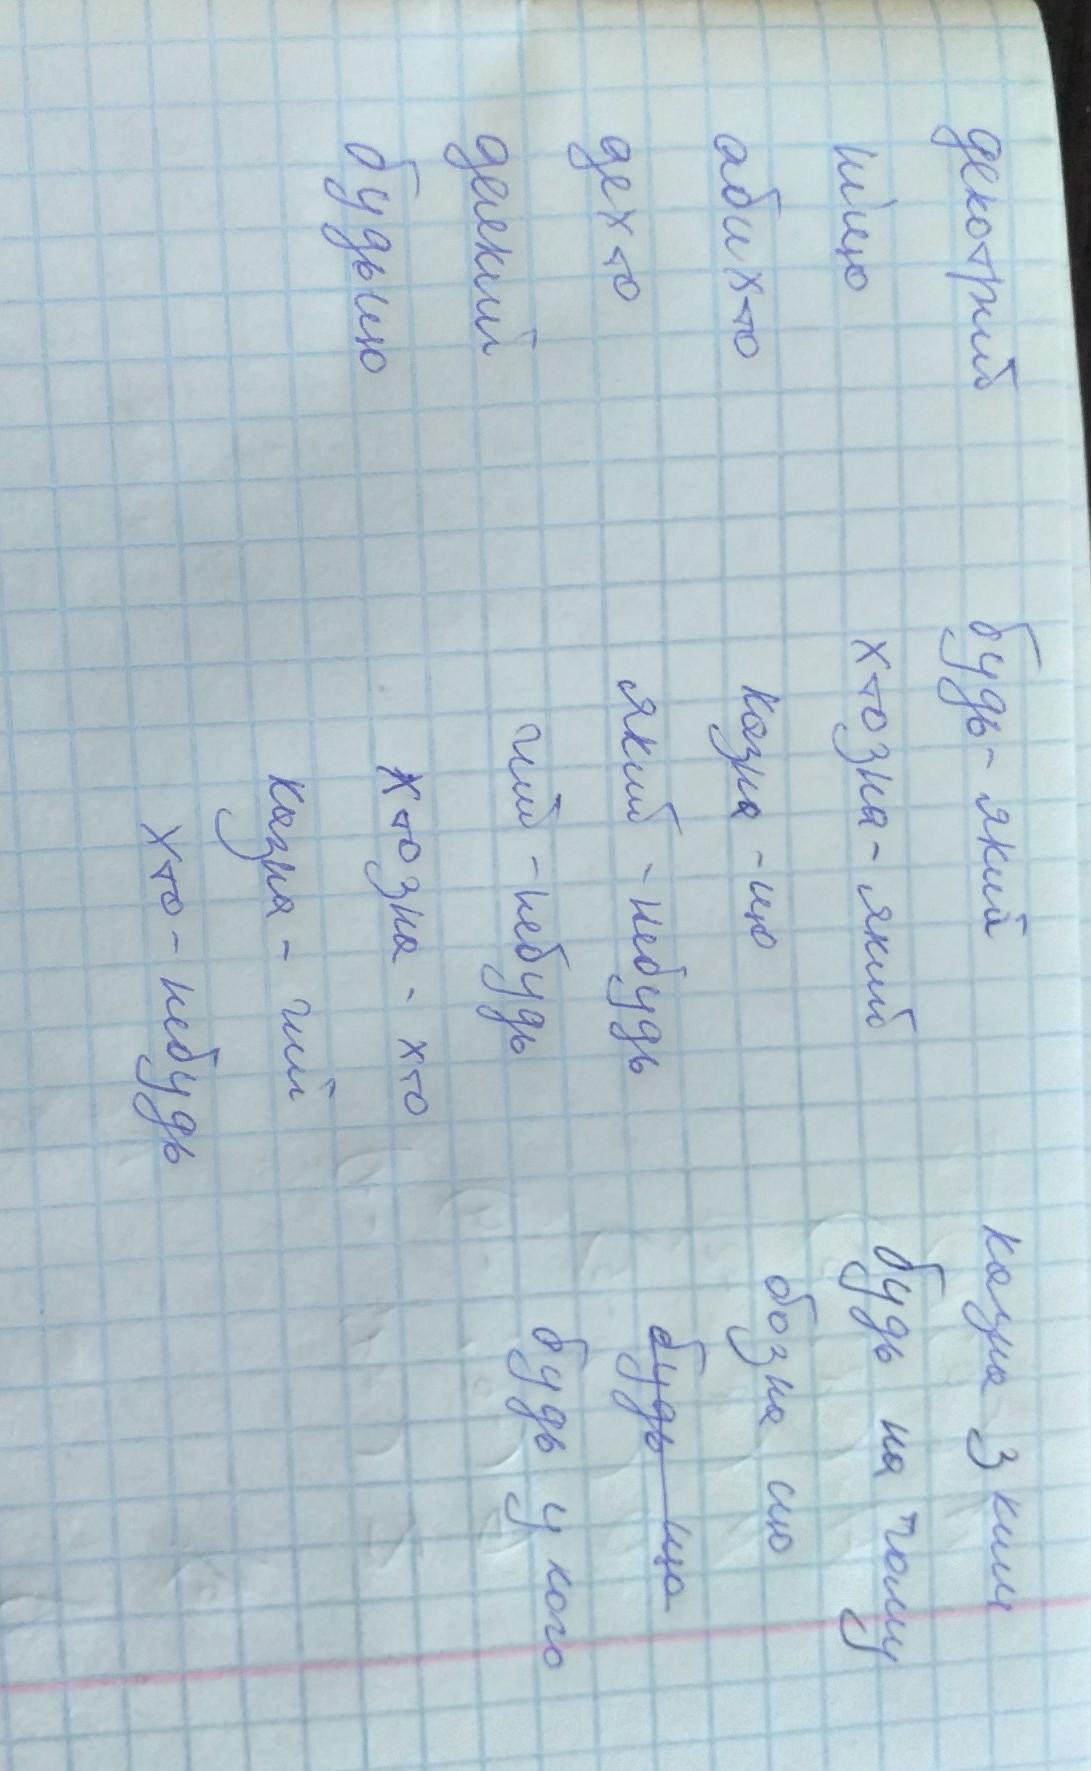 декотрий
ніщо
абихто
дехто
деякий
будьщо
будь-який
хтозна-який
казна-що
який-небудь
чий-небудь
хтозна-хто
казна-чий
хто-небудь
казна з ким
будь на чому
бозна що
будь що
будь у кого